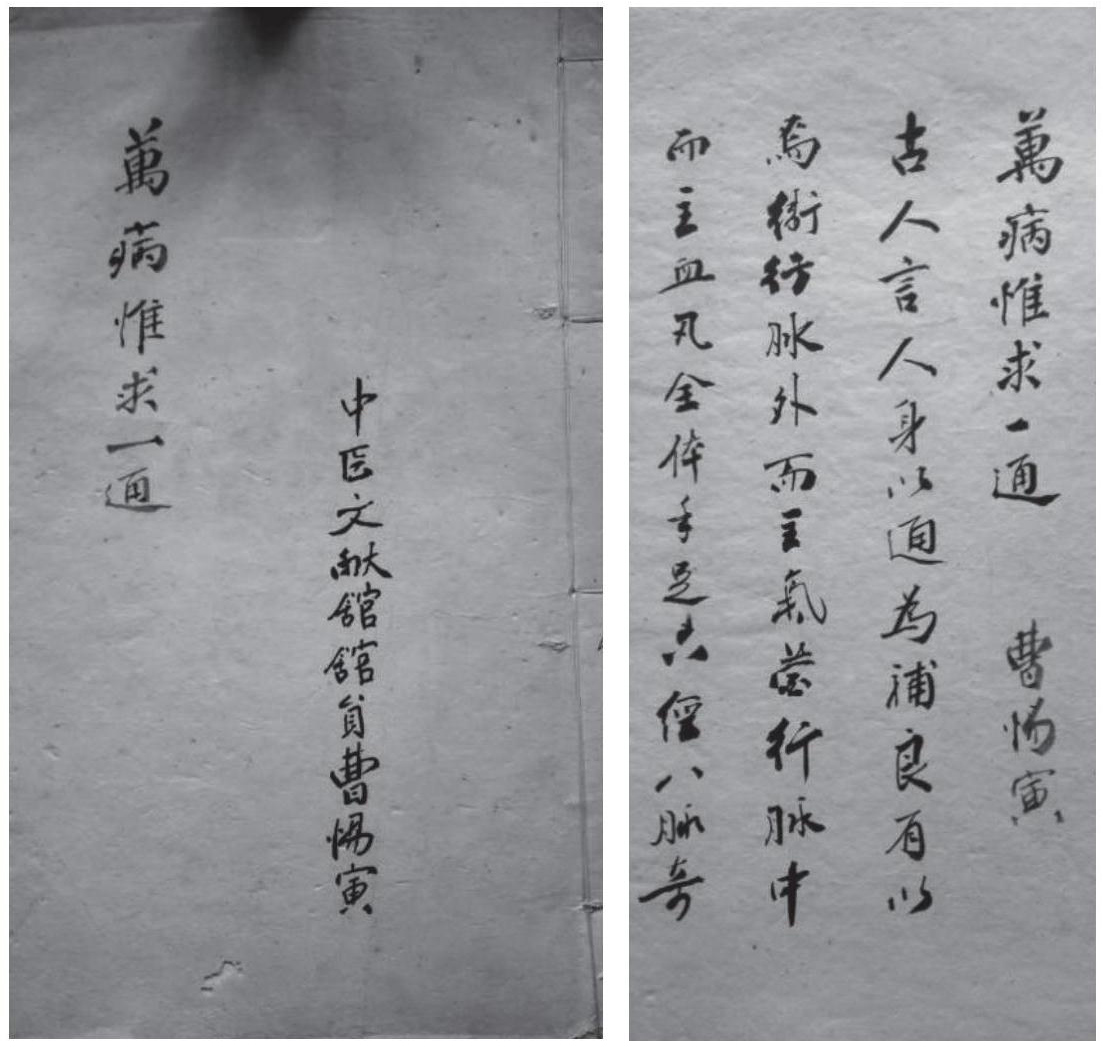 中医文献舘舘員曹惕寅
萬病惟求一通
萬病惟求一通 曹惕寅
古人言人身以通為補良有以
焉衛行脉外而主氣營行脉中
而主血凡全体手足六經八脉奇